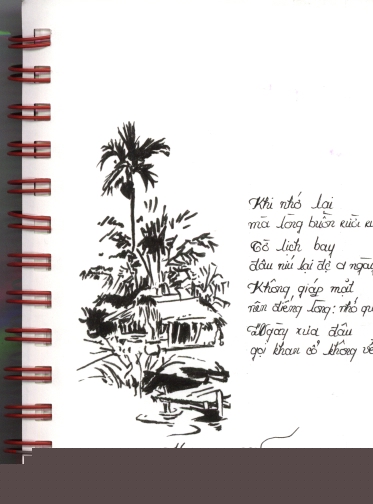 Khi nhớ lại
mà lòng buồn rười
Tờ lịch bay
đâu níu lại ngày
Không giáp mặt
nên điếng lòng: nhớ
Ngày xưa đâu
gọi khan cổ không về